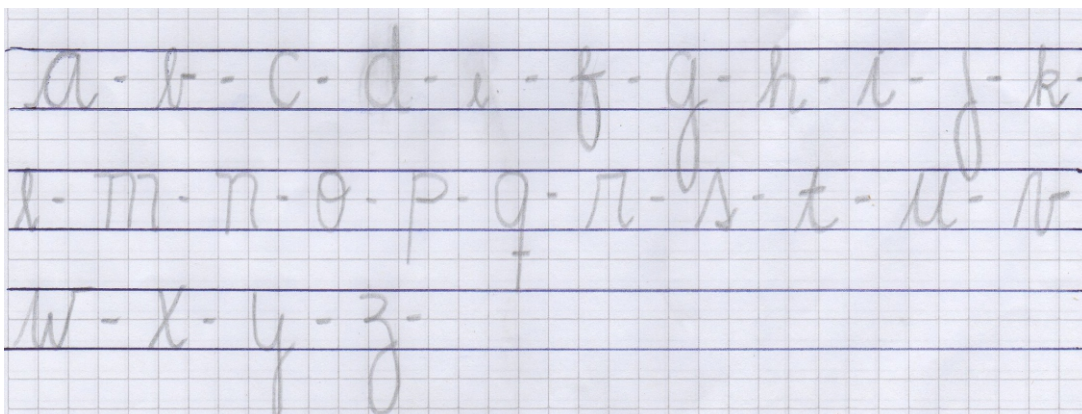 a - b - c - d - e - f - g - h - i - j - k -
l - m - n - o - p - q - r - s - t - u - v -
w - x - y - z -